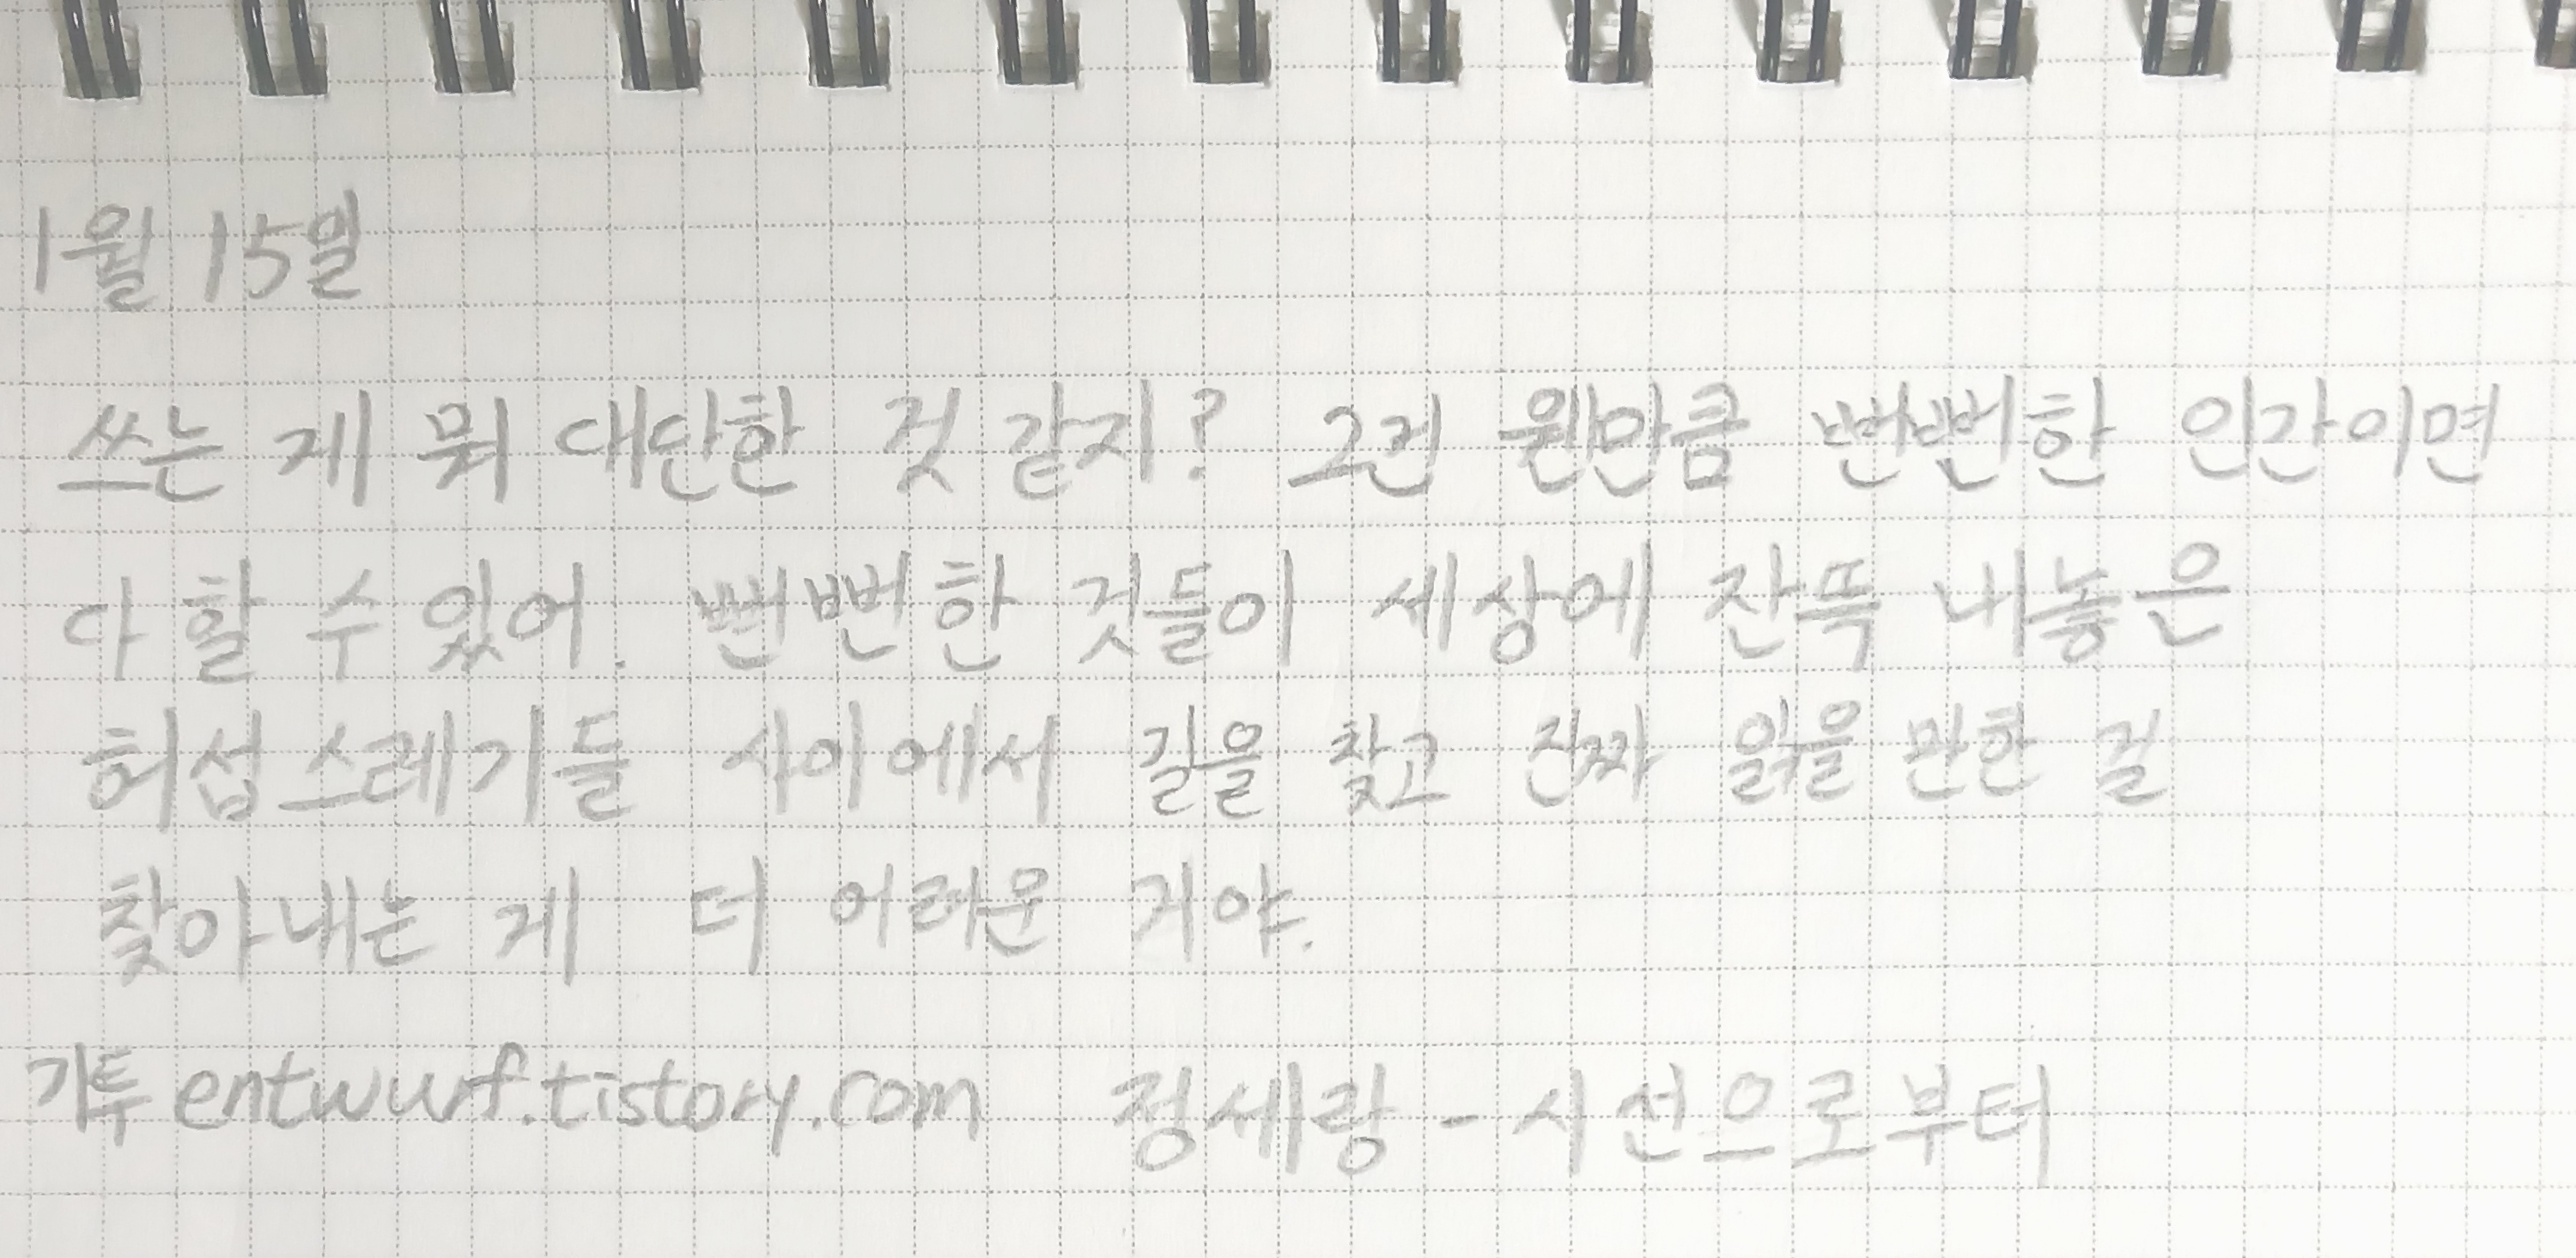 1월 15일
쓰는 게 뭐 대단한 것 같지? 그건 웬만큼 뻔뻔한 인간이면
다 할 수 있어. 뻔뻔한 것들이 세상에 잔뜩 내놓은
허섭스레기들 사이에서 길을 찾고 진짜 읽을 만한 걸
찾아내는 게 더 어려운 거야.
기투 entwurf.tistory.com 정세랑 - 시선으로부터